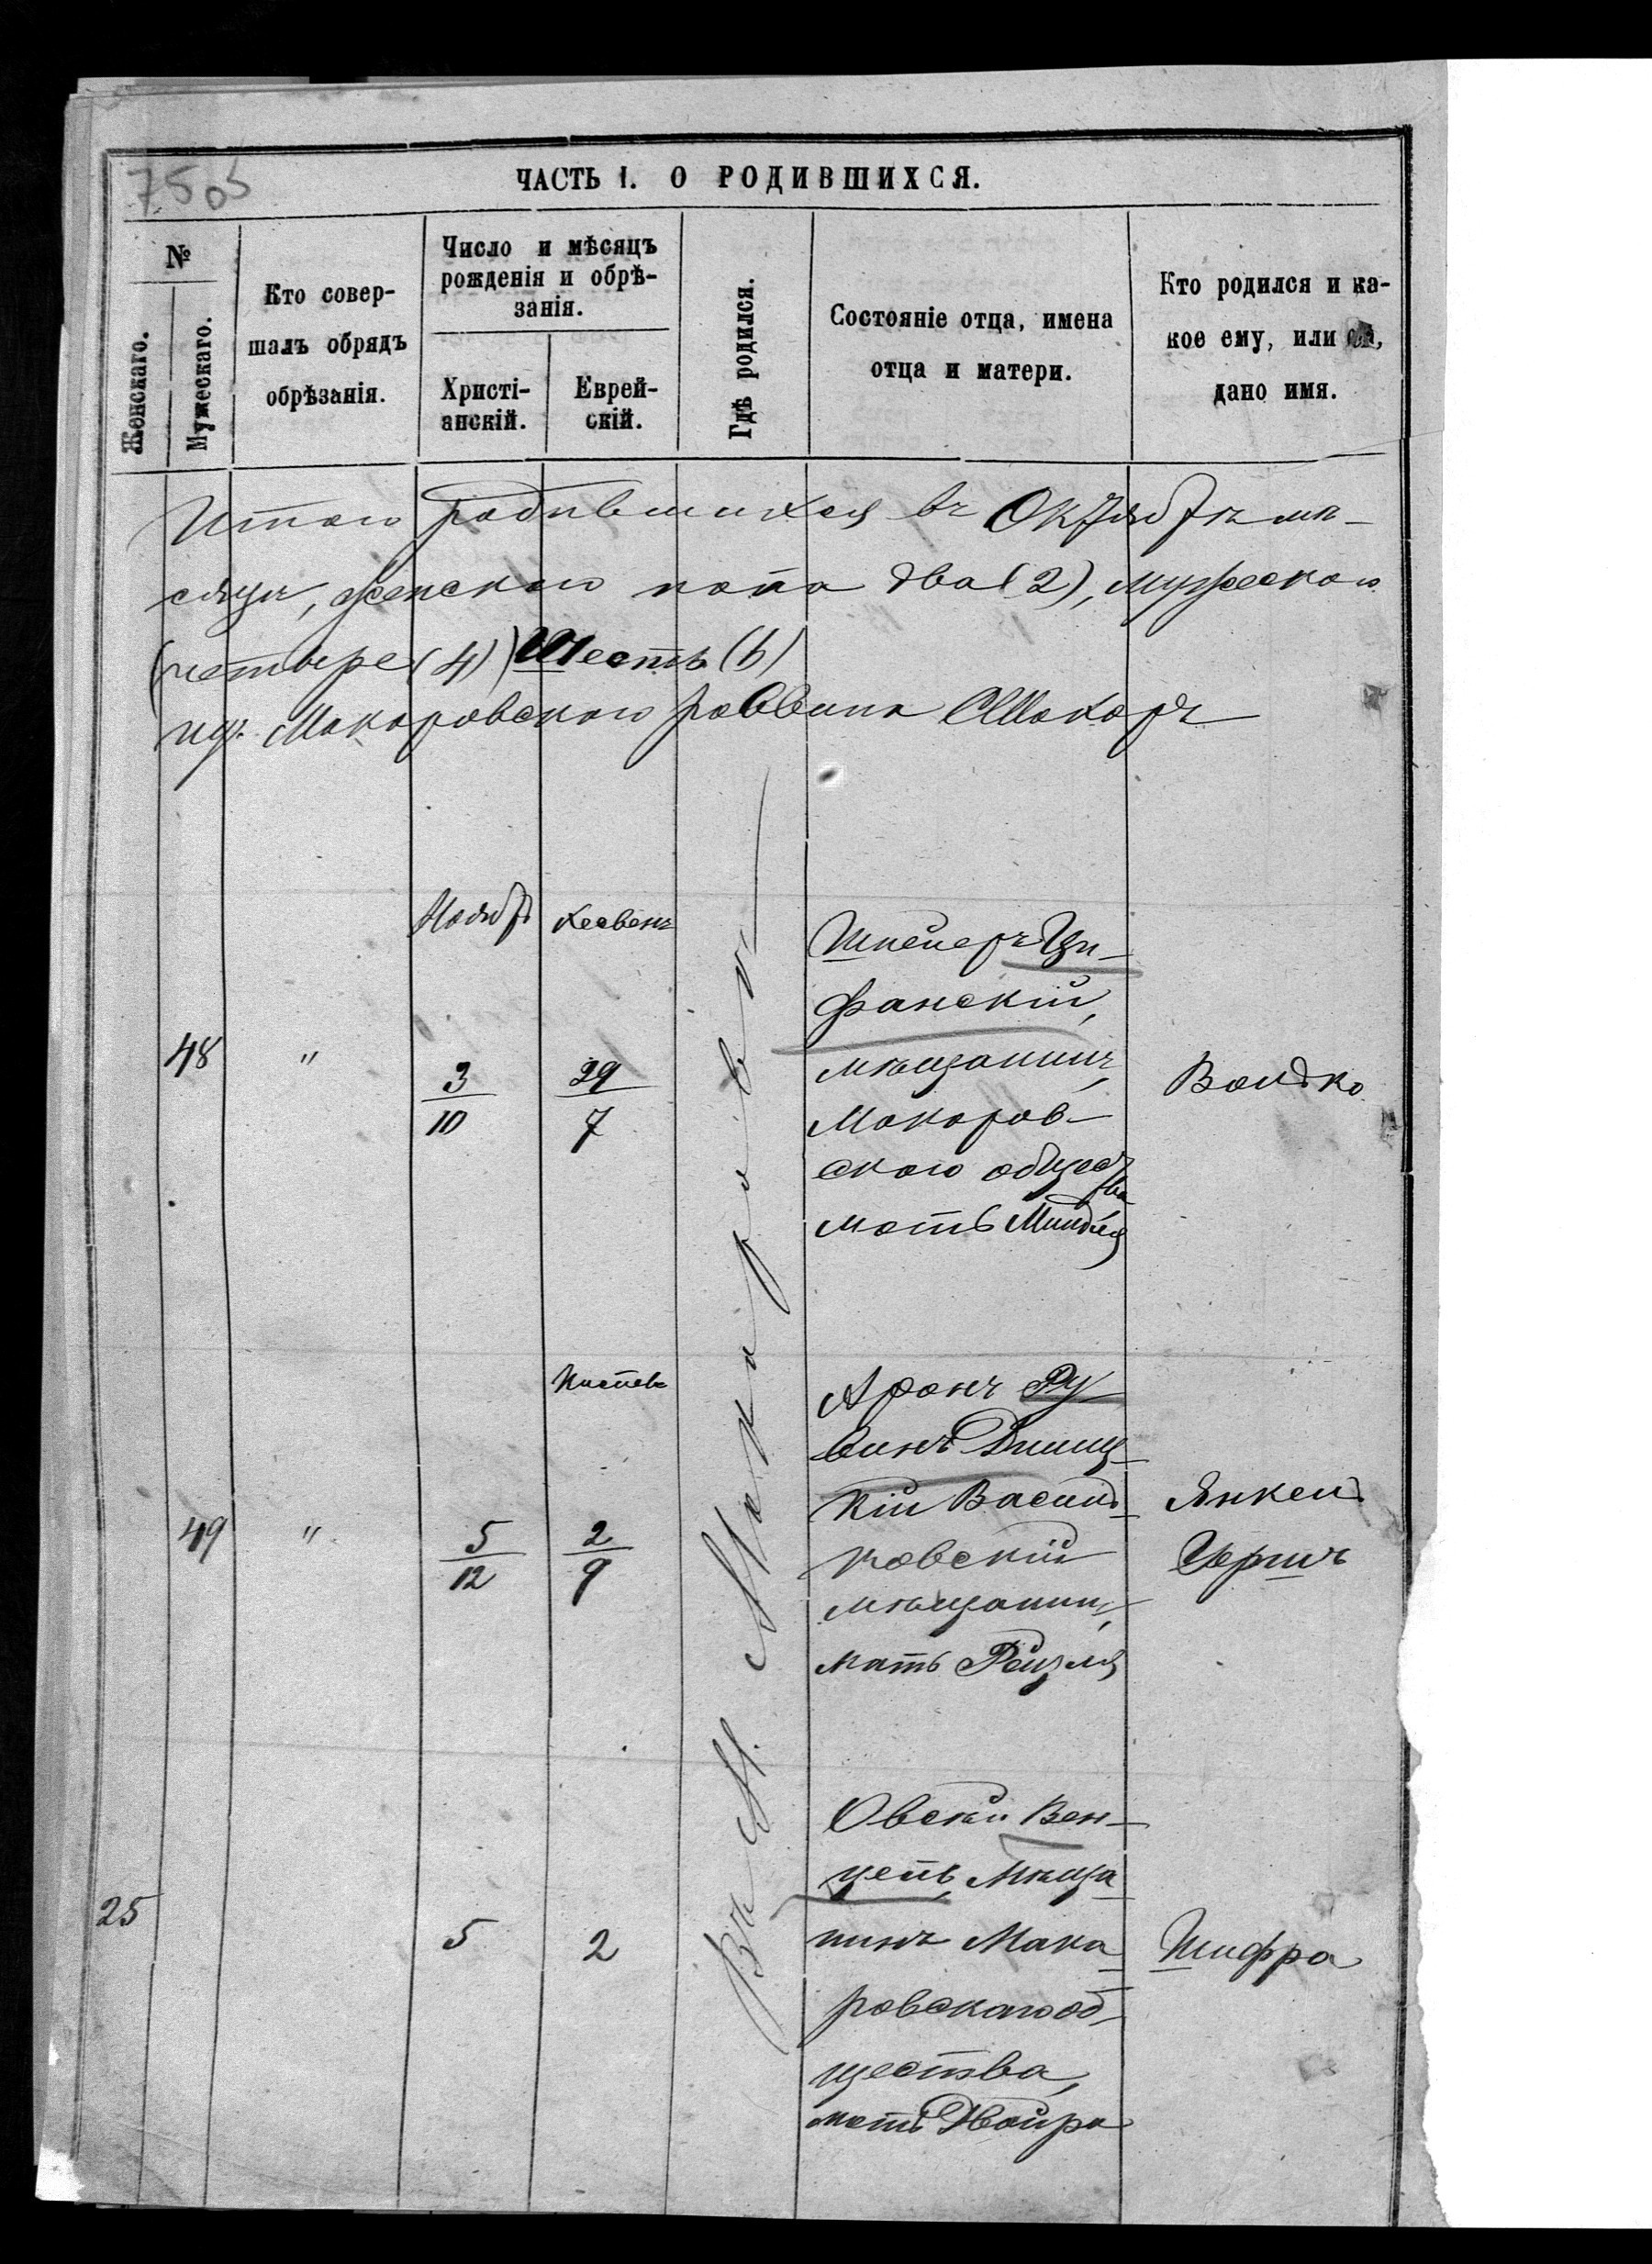 7505
ЧАСТЬ I. О РОДИВШИХСЯ.
№
Женскаго.
Мужескаго.
Кто совер-
шалъ обрядъ
обрѣзанія.
Число и мѣсяцъ
рожденія и обрѣ-
занія.
Христі-
анскій.
Еврей-
скій.
Гдѣ родился.
Состояніе отца, имена
отца и матери.
Кто родился и ка-
кое ему, или ей,
дано имя.
Итого родившихся въ Октябрѣ мѣ-
сяцѣ, женского пола два (2), мужеского
четыре (4) Шесть (6)
Макаровского раввина
Въ М. Макаровѣ
Ноябрь
Хесвенъ
48
"
3
10
29
7
Шнеперъ Ци-
фанскій,
мѣщанинъ,
Макаров-
ского общест
ва
мать Миндля
Волько
Кислев
49
"
5
12
2
9
Аронъ Ру
винъ
кій Василь-
ковскій
мѣщанинъ,
мать Рейзля
Янкель
Гершъ
25
5
2
Овсей Вен-
цель, Мѣща
нинъ Мака
ровскаго об-
щества,
мать Двойра
Шифра